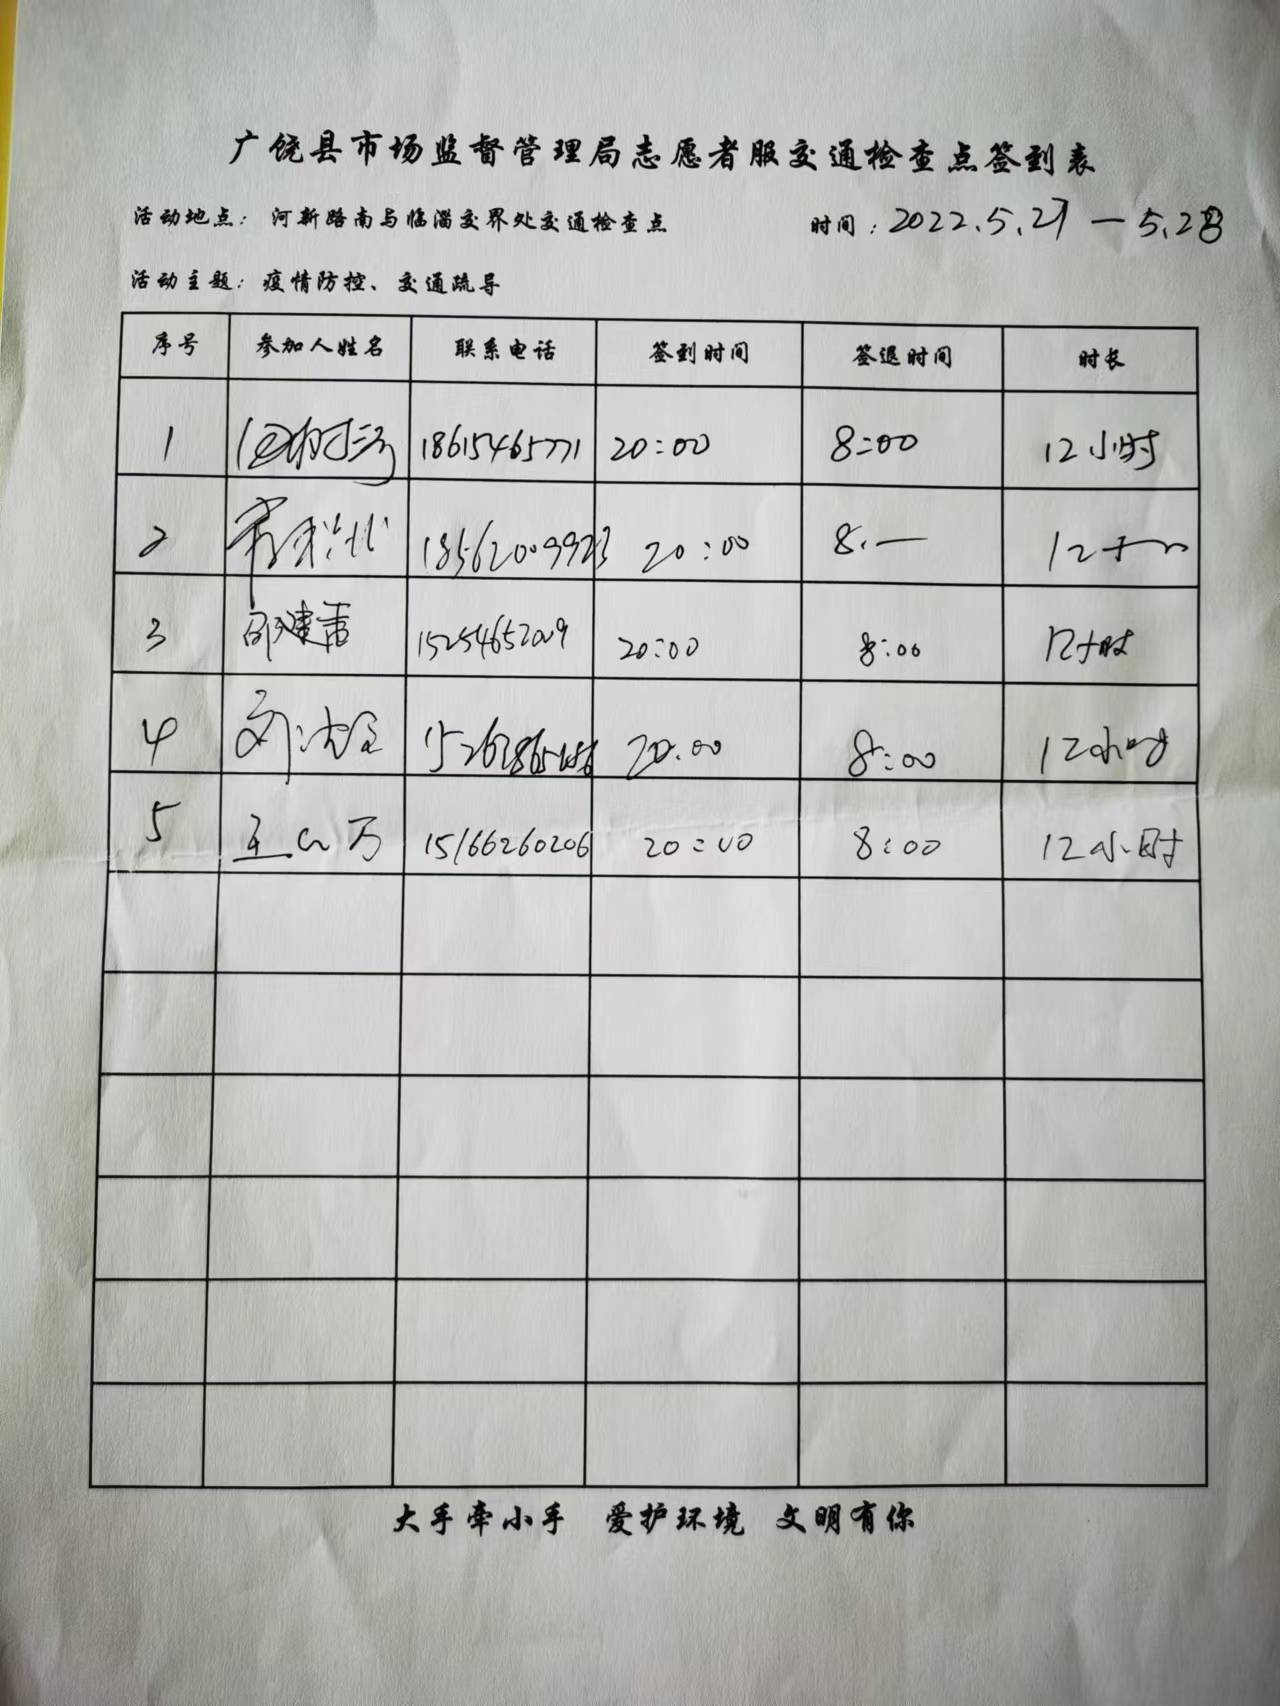 广饶县市场监督管理局志愿者服交通检查点签到表
活动地点：河新路南与临淄交界处交通检查点 时间：2022.5.27—5.28
活动主题：疫情防控、交通疏导
序号 参加人姓名 联系电话 签到时间 签退时间 时长
1 18615465771 20:00 8:00 12小时
2 18562009923 20:00 8.— 12小时
3 邵建蕾 15254652009 20:00 8:00 12小时
4 20:00 8:00 12小时
5 15166260206 20:00 8:00 12小时
大手牵小手 爱护环境 文明有你